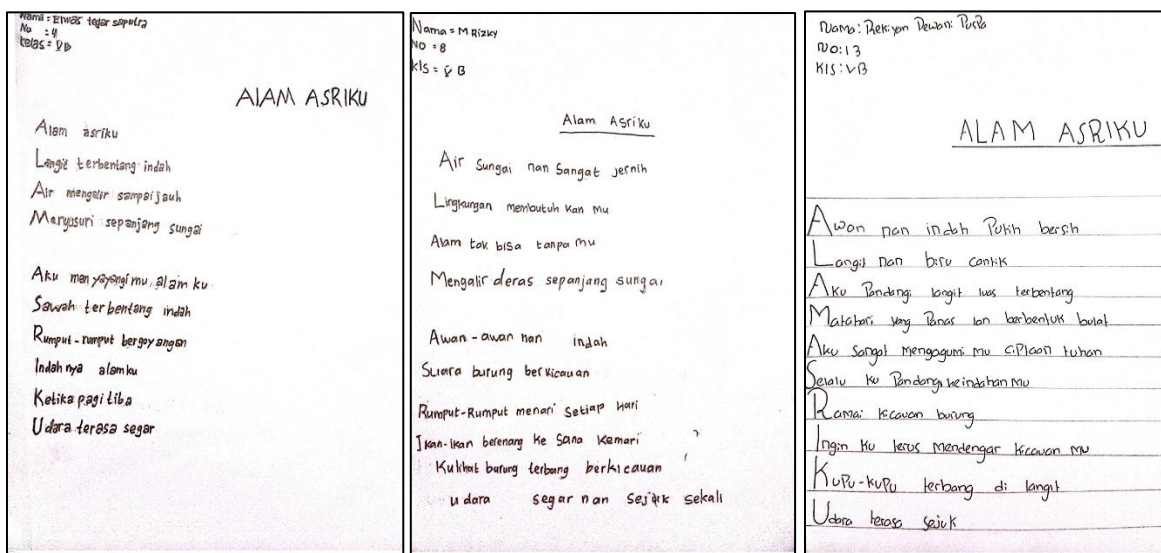 Nama = Elwas tegar saputra
No = 4
kelas = V B
AlAM ASRIKU
Alam asriku
Langit terbentang indah
Air mengalir sampai jauh
Menyusuri sepanjang sungai
Aku menyayangi mu, alam ku
Sawah terbentang indah
Rumput-rumput bergoyangan
Indah nya alamku
Ketika pagi tiba
Udara terasa segar
Nama = M Rizky
NO = 8
Kls = V B
Alam Asriku
Air Sungai nan Sangat jernih
Lingkungan membutuh kan mu
Alam tak bisa tanpa mu
Mengalir deras sepanjang sungai
Awan-awan nan indah
Suara burung berkicauan
Rumput-Rumput menari Setiap Hari
Ikan-ikan berenang Ke Sana Kemari
Kulihat burung terbang berkicauan
udara segar nan Sejuk sekali
Nama: Rekiyan Dewani Puspa
NO: 13
KlS: VB
ALAM ASRIKU
Awan nan indah Putih bersih
Langit nan biru cantik
Aku Pandangi langit luas terbentang
Matahari yang Panas lan berbentuk bulat
Aku Sangat mengagumi mu ciPtaan tuhan
Selalu ku Pandang keindahan Mu
Ramai kicauan burung
Ingin ku terus mendengar kicauan mu
KuPu-kuPu terbang di langit
Udara terasa Sejuk